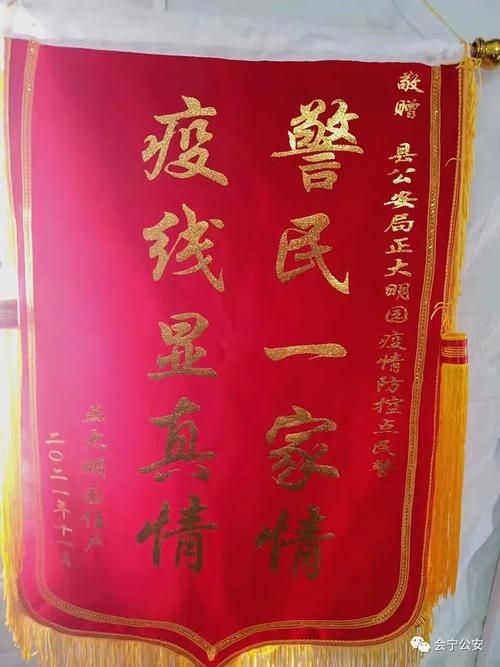 敬赠 县公安局正大明园疫情防控点民警
警民一家情
疫线显真情
正大明园住户
二〇二一年十一月
会宁公安